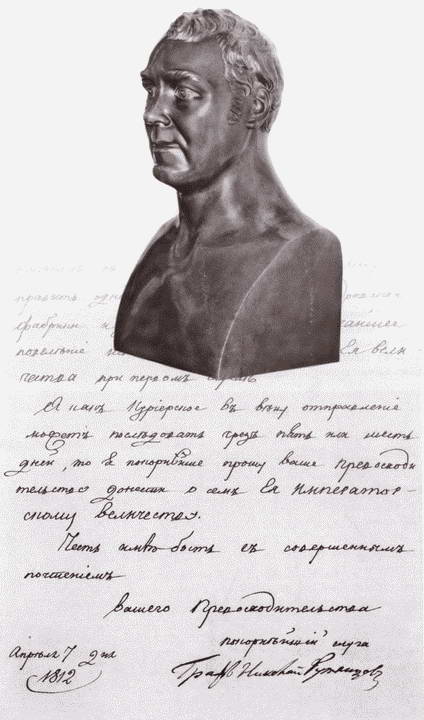 править
фабрики
повелѣніе Ея вели-
чества при первомъ
А какъ Курьерское въ вѣну отправленіе
можетъ послѣдовать чрезъ пять или шесть
дней, то Я покорнѣйше прошу ваше превосходи
тельство донести о семъ Ея Император-
скому величеству.
Честь имѣю быть съ совершеннымъ
почтеніемъ
вашего Превосходительства
покорнѣйшій слуга
Графъ Николай Румянцовъ
Апрѣля 7 дня
1812